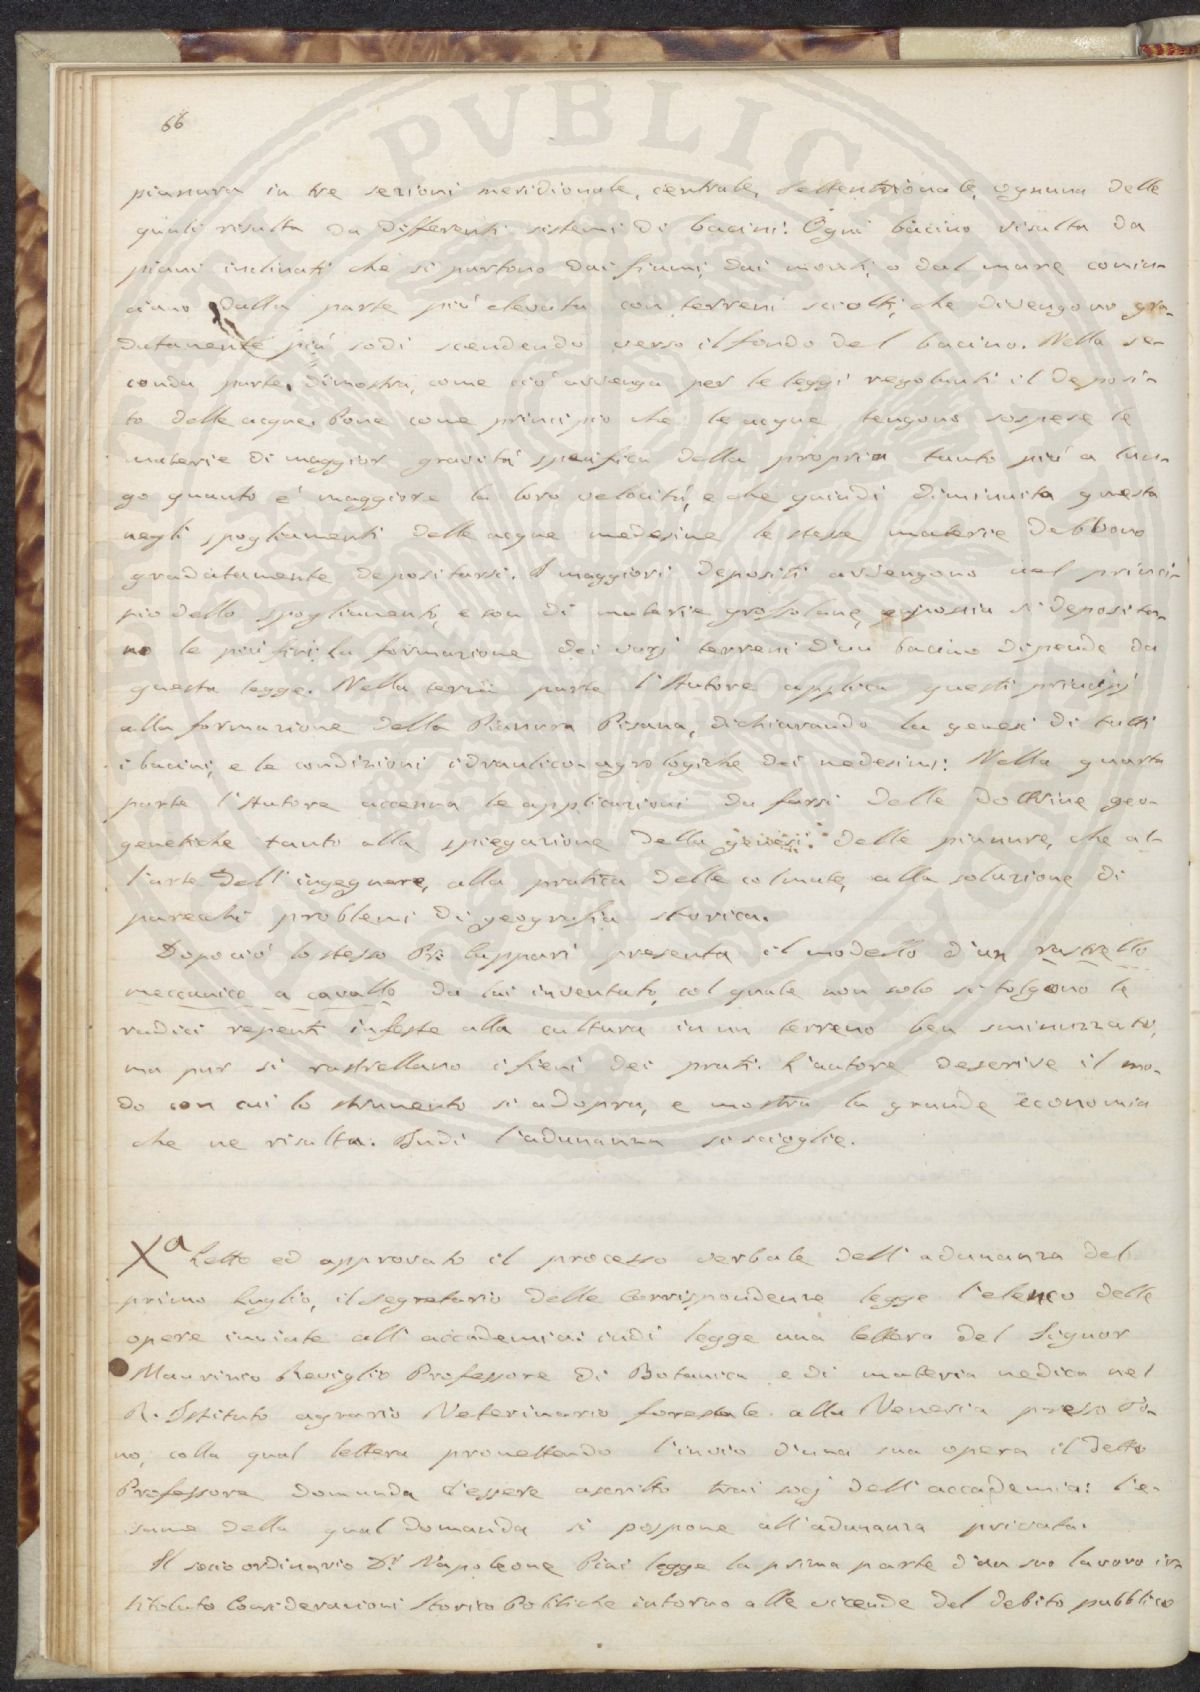 66
pianura in tre sezioni meridionale, centrale, settentrionale, ognuna delle
quali risulta da differenti sistemi di bacini: Ogni bacino risulta da
piani inclinati che si partono dai fiumi, dai monti, o dal mare comin-
ciano dalla parte più elevata con terreni sciolti, che divengono gra-
datamente più sodi scendendo verso il fondo del bacino. Nella se-
conda parte, dimostra, come ciò avvenga per le leggi regolanti il deposi-
to delle acque. Pone come principio che le acque tengono sospese le
materie di maggior gravità specifica della propria tanto più a lun-
go quanto è maggiore la loro velocità, e che quindi diminuita questa
negli spogliamenti delle acque medesime le stesse materie debbono
gradatamente depositarsi. I maggiori depositi avvengono nel princi-
pio dello spogliamento, e son di materie grossolane, e poscia si deposita-
no le più fini, la formazione dei varj terreni d'un bacino dipende da
questa legge. Nella terza parte l'Autore applica questi principj
alla formazione della Pianura Pisana, dichiarando la genesi di tutti
i bacini, e le condizioni idraulico-agrologiche dei medesimi: Nella quarta
parte l'Autore accenna le applicazioni da farsi delle dottrine geo-
genetiche tanto alla spiegazione della genesi delle pianure, che al-
l'arte dell'ingegnere, alla pratica delle colmate, alla soluzione di
parecchi problemi di geografia storica.
Dopociò lo stesso Pr. Cuppari presenta il modello d'un rastrello
meccanico a cavallo da lui inventato, col quale non solo si tolgono le
radici repenti infeste alla cultura in un terreno ben sminuzzato,
ma pur si rastrellano i fieni dei prati. L'autore descrive il mo-
do con cui lo strumento si adopra, e mostra la grande economia
che ne risulta. Indi l'adunanza si scioglie.
Xa Letto ed approvato il processo verbale dell'adunanza del
primo Luglio, il segretario delle Corrispondenze legge l'elenco delle
opere inviate all'accademia: indi legge una lettera del Signor
Maurinio Reviglio Professore di Botanica e di materia medica nel
R. Istituto agrario Veterinario forestale alla Veneria presso To-
no, colla qual lettera promettendo l'invio d'una sua opera il detto
Professore domanda d'essere ascritto trai socj dell'accademia: l'e-
same della qual domanda si pospone all'adunanza privata.
Il socio ordinario Dr. Napoleone Pini legge la prima parte d'un suo lavoro in-
titolato Considerazioni Storico Politiche intorno alle vicende del debito pubblico